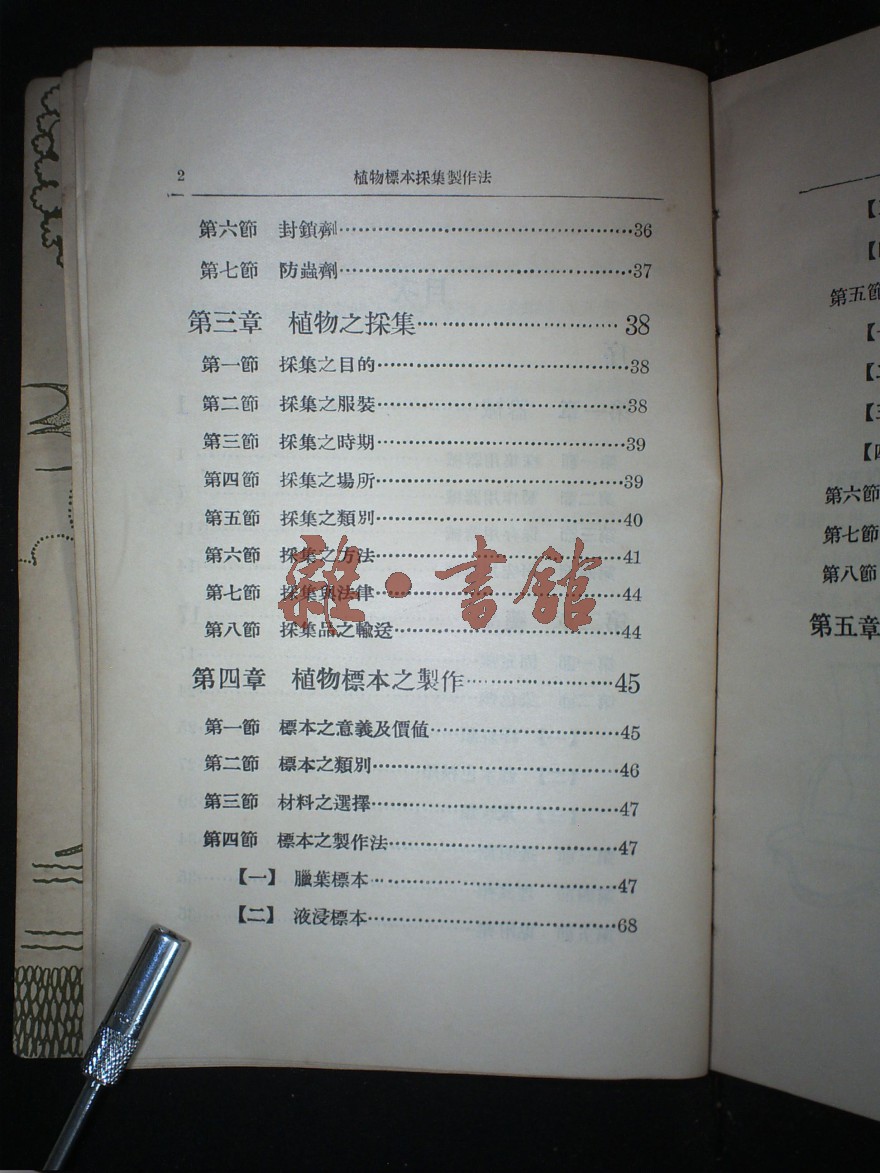 2 植物標本採集製作法
第六節 封鎖劑…………36
第七節 防蟲劑…………37
第三章 植物之採集…………38
第一節 採集之目的…………38
第二節 採集之服裝…………38
第三節 採集之時期…………39
第四節 採集之場所…………39
第五節 採集之類別…………40
第六節 採集之方法…………41
第七節 採集與法律…………44
第八節 採集品之輸送…………44
第四章 植物標本之製作…………45
第一節 標本之意義及價值…………45
第二節 標本之類別…………46
第三節 材料之選擇…………47
第四節 標本之製作法…………47
【一】 臘葉標本…………47
【二】 液浸標本…………68
雜·書館
第五節
第六節
第七節
第八節
第五章